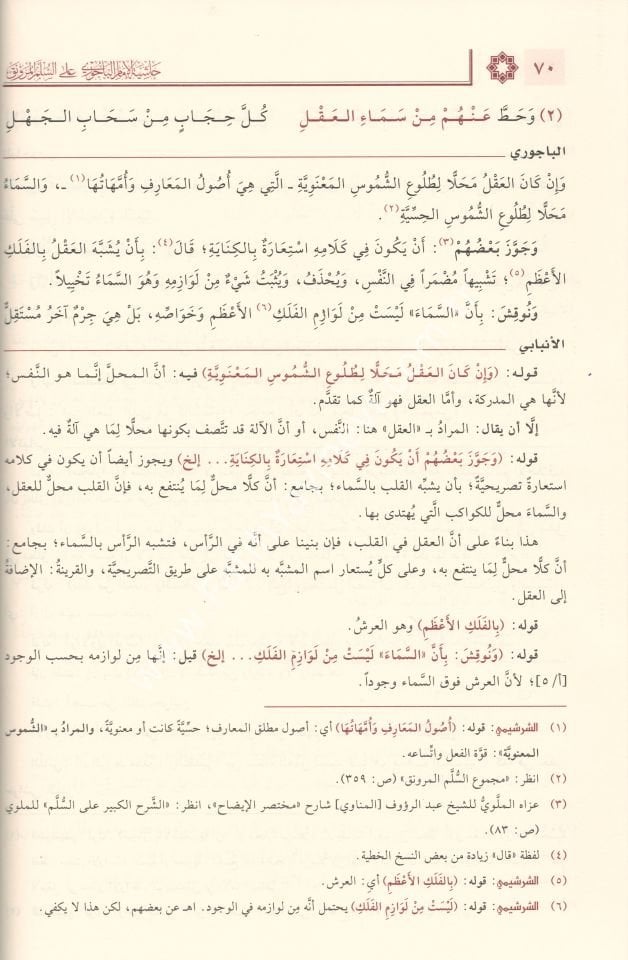 ٧٠
حاشية الإمام الباجوري على السلم المرونق
(٢) وَحَطَّ عَنْهُمْ مِنْ سَمَاءِ العَقْلِ كُلَّ حِجَابٍ مِنْ سَحَابِ الجَهْلِ
الباجوري
وَإِنْ كَانَ العَقْلُ مَحَلًّا لِطُلُوعِ الشُّمُوسِ المَعْنَوِيَّةِ ـ الَّتِي هِيَ أُصُولُ المَعَارِفِ وَأُمَّهَاتُهَا(١) ـ، وَالسَّمَاءُ
مَحَلًّا لِطُلُوعِ الشُّمُوسِ الحِسِّيَّةِ(٢).
وَجَوَّزَ بَعْضُهُمْ(٣): أَنْ يَكُونَ فِي كَلَامِهِ اسْتِعَارَةٌ بِالكِنَايَةِ؛ قَالَ(٤): بِأَنْ يُشَبَّهَ العَقْلُ بِالفَلَكِ
الأَعْظَمِ(٥)؛ تَشْبِيهاً مُضْمَراً فِي النَّفْسِ، وَيُحْذَفُ، وَيُثْبَتُ شَيْءٌ مِنْ لَوَازِمِهِ وَهُوَ السَّمَاءُ تَخْيِيلاً.
وَنُوقِشَ: بِأَنَّ «السَّمَاءَ» لَيْسَتْ مِنْ لَوَازِمِ الفَلَكِ(٦) الأَعْظَمِ وَخَوَاصِّهِ، بَلْ هِيَ جِرْمٌ آخَرُ مُسْتَقِلٌّ
الأنبابي
قوله: (وَإِنْ كَانَ العَقْلُ مَحَلًّا لِطُلُوعِ الشُّمُوسِ المَعْنَوِيَّةِ) فيه: أنَّ المحلَّ إنَّما هو النَّفس؛
لأنَّها هي المدركة، وأمَّا العقل فهو آلةٌ كما تقدَّم.
إلَّا أن يقال: المرادُ بـ «العقل» هنا: النَّفس، أو أنَّ الآلة قد تتَّصف بكونها محلًّا لِمَا هي آلةٌ فيه.
قوله: (وَجَوَّزَ بَعْضُهُمْ أَنْ يَكُونَ فِي كَلَامِهِ اسْتِعَارَةٌ بِالكِنَايَةِ... إلخ) ويجوز أيضاً أن يكون في كلامه
استعارة تصريحيَّة؛ بأن يشبَّه القلب بالسَّماء؛ بجامع: أنَّ كلًّا محلٌّ لِمَا يُنتفع به، فإنَّ القلب محلٌّ للعقل،
والسَّماء محلٌّ للكواكب الَّتي يُهتدى بها.
هذا بناءً على أنَّ العقل في القلب، فإن بنينا على أنَّه في الرَّأس، فتشبه الرَّأس بالسَّماء؛ بجامع:
أنَّ كلًّا محلٌّ لِمَا ينتفع به، وعلى كلٍّ يُستعار اسم المشبَّه به للمشبَّه على طريق التَّصريحيَّة، والقرينةُ: الإضافةُ
إلى العقل.
قوله: (بِالفَلَكِ الأَعْظَمِ) وهو العرشُ.
قوله: (وَنُوقِشَ: بِأَنَّ «السَّمَاءَ» لَيْسَتْ مِنْ لَوَازِمِ الفَلَكِ... إلخ) قيل: إنَّها مِن لوازمه بحسب الوجود
[أ/٥]؛ لأنَّ العرش فوق السَّماء وجوداً.
(١) الشرشيمي: قوله: (أُصُولُ المَعَارِفِ وَأُمَّهَاتُهَا) أي: أصول مطلق المعارف؛ حسِّيَّةً كانت أو معنويَّة، والمرادُ بـ «الشُّموس
المعنويَّة»: قوَّة الفعل واتِّساعه.
(٢) انظر: «مجموع السُّلَّم المرونق» (ص: ٣٥٩).
(٣) عزاه الملَّويُّ للشيخ عبد الرؤوف [المناوي] شارح «مختصر الإيضاح»، انظر: «الشَّرح الكبير على السُّلَّم» للملوي
(ص: ٨٣).
(٤) لفظة «قال» زيادة من بعض النسخ الخطية.
(٥) الشرشيمي: قوله: (بِالفَلَكِ الأَعْظَمِ) أي: العرش.
(٦) الشرشيمي: قوله: (لَيْسَتْ مِنْ لَوَازِمِ الفَلَكِ) يحتمل أنَّه مِن لوازمه في الوجود. اهـ عن بعضهم، لكن هذا لا يكفي.